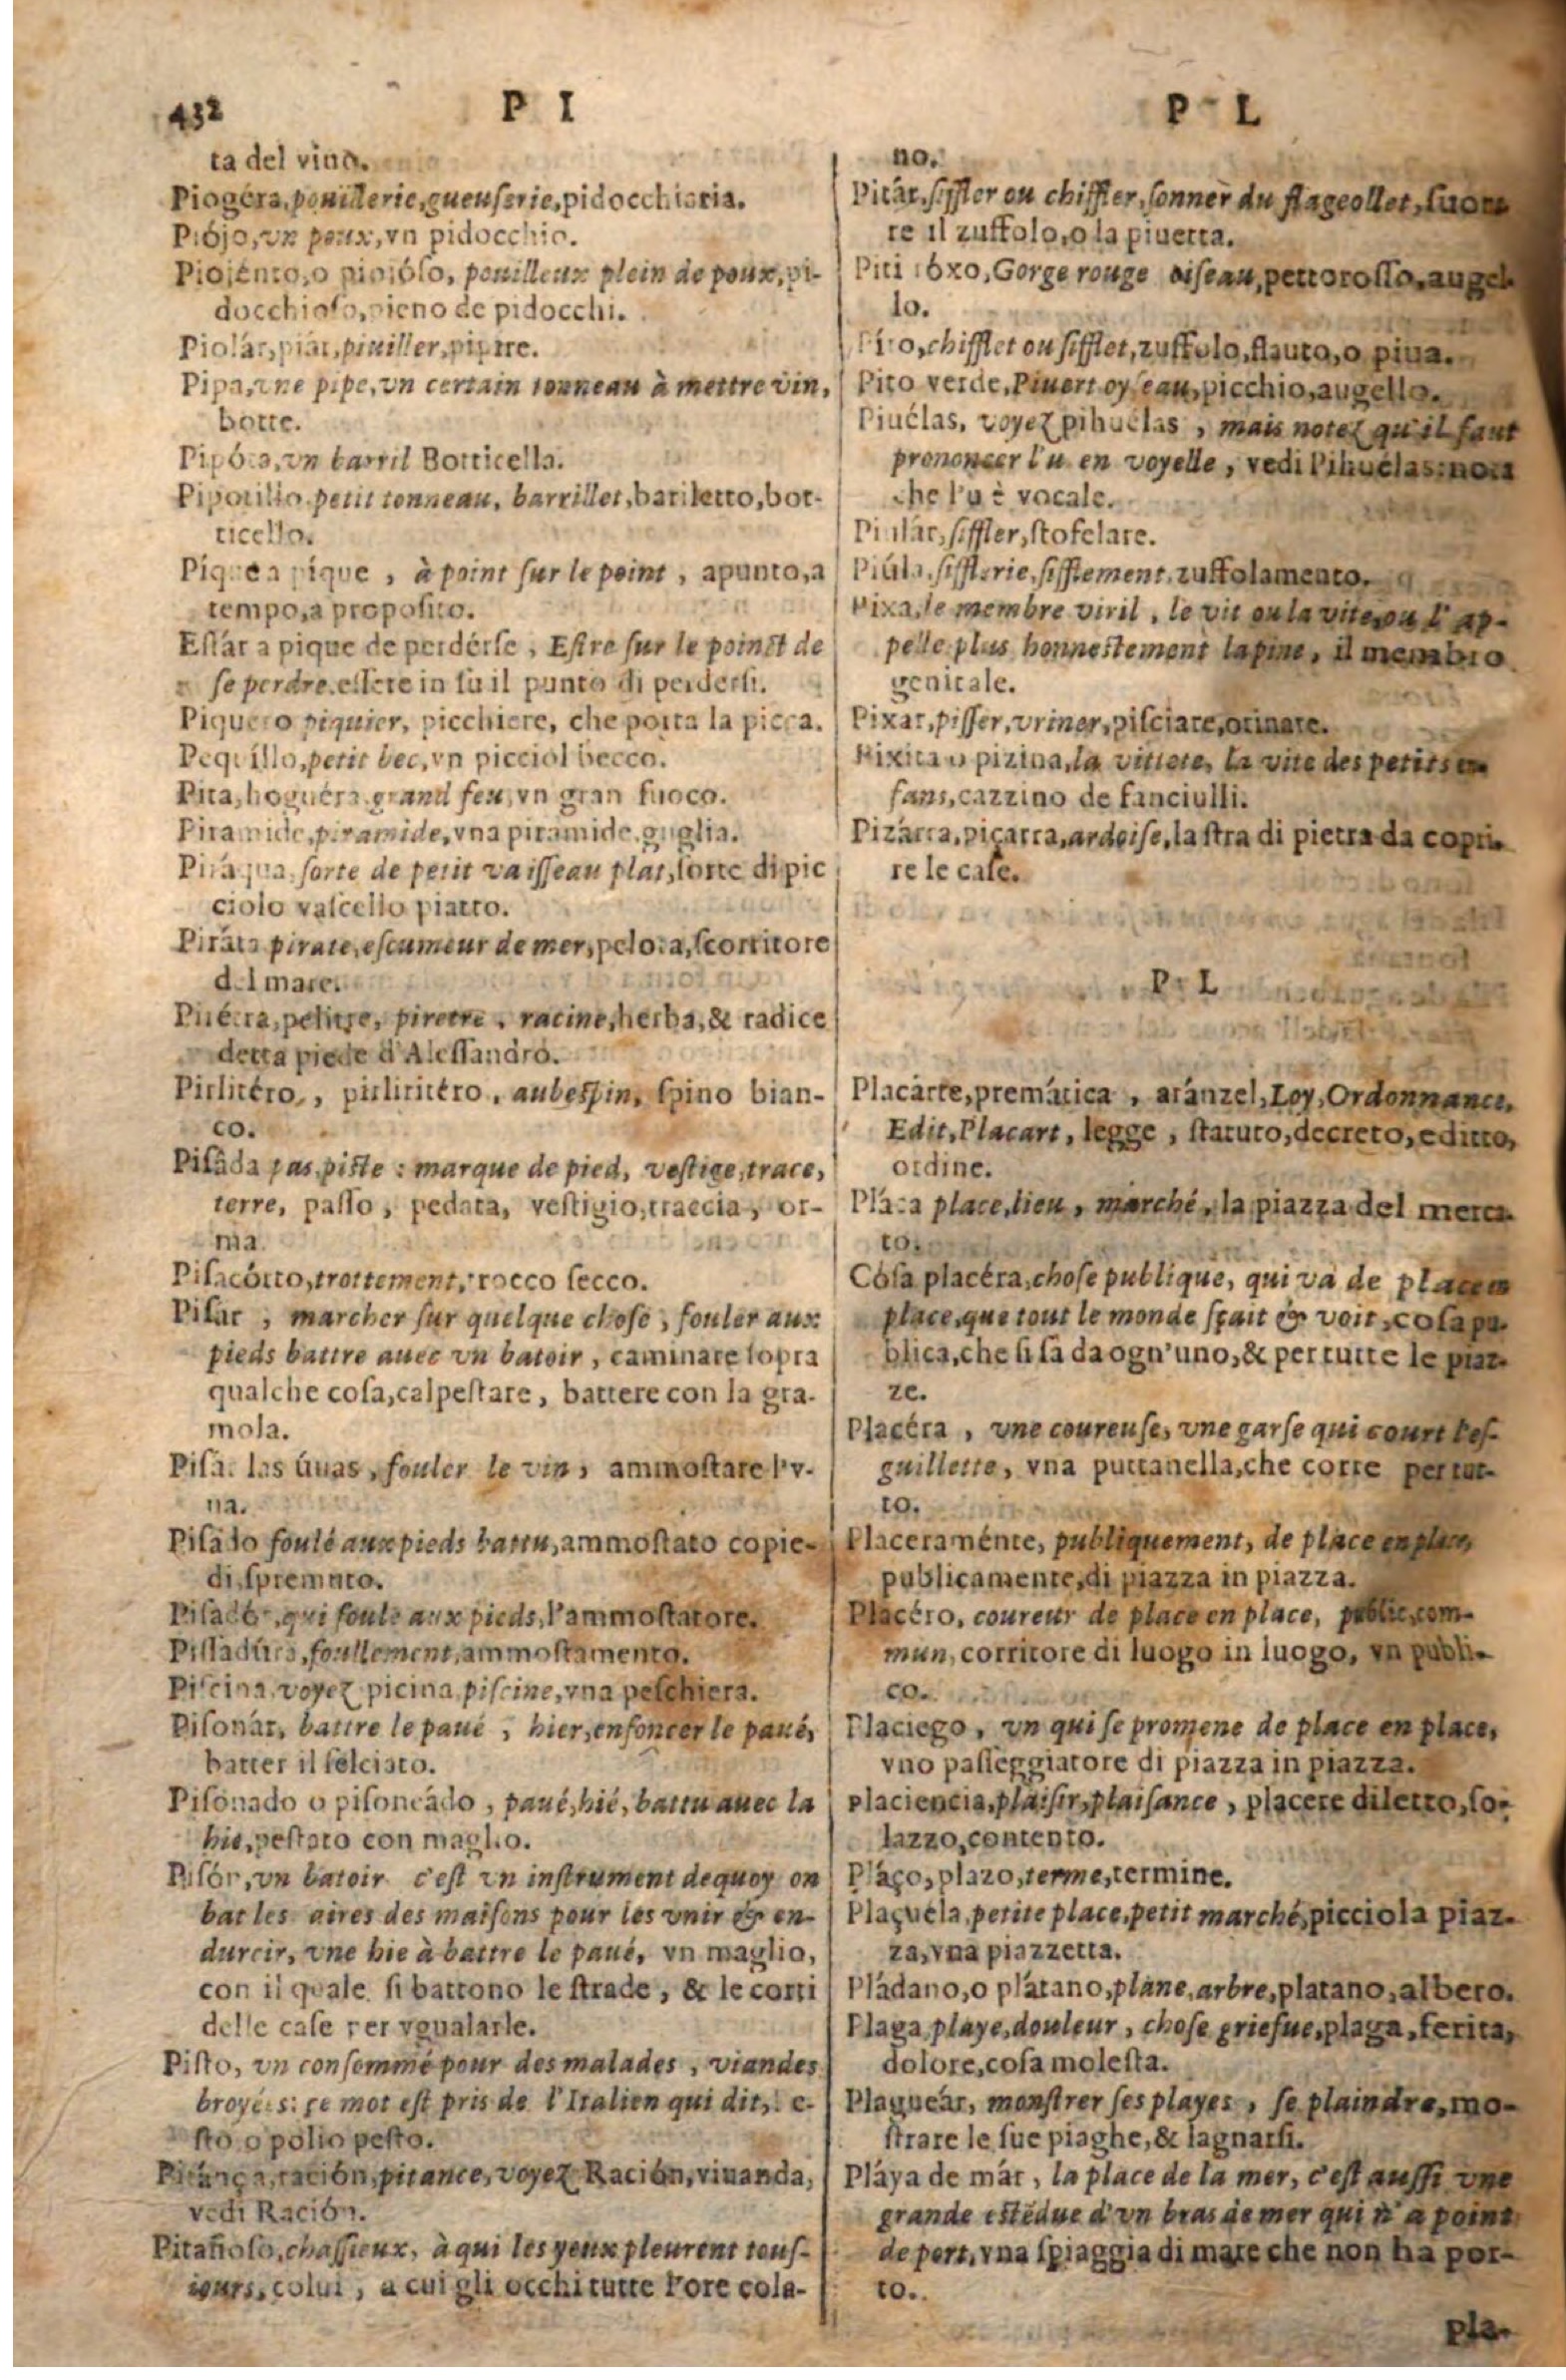 432
P I
P L
ta del vino.
Piogéra, pouillerie, gueuserie, pidocchiaria.
Piójo, vn poux, vn pidocchio.
Piojénto, o piojóso, pouilleux plein de poux, pi-
docchioso, pieno de pidocchi.
Piolár, piár, piuiller, pipire.
Pipa, vne pipe, vn certain tonneau à mettre vin,
botte.
Pipóta, vn barril Botticella.
Pipotillo, petit tonneau, barrillet, bariletto, bot-
ticello.
Pique a pique, à point sur le point, apunto, a
tempo, a proposito.
Estár a pique de perdérse, Estre sur le poinct de
se perdre, essere in sù il punto di perdersi.
Piquero piquier, picchiere, che porta la picca.
Pequíllo, petit bec, vn picciol becco.
Pira, hoguéra, grand feu, vn gran fuoco.
Piramide, piramide, vna piramide, guglia.
Piráqua, sorte de petit vaisseau plat, sorte di pic
ciolo vascello piatto.
Piráta pirate, escumeur de mer, scorritore
del mare.
pelitre, piretre, racine, herba, & radice
detta piede d'Alessandro.
Pirlitéro, pirliritéro, aubespin, spino bian-
co.
Pisáda pas, piste: marque de pied, vestige, trace,
terre, passo, pedata, vestigio, traccia, or-
ma
Pisacórto, trottement, trocco secco.
Pisar, marcher sur quelque chose, fouler aux
pieds battre auec vn batoir, caminare sopra
qualche cosa, calpestare, battere con la gra-
mola.
Pisar las úuas, fouler le vin, ammostare l'v-
ua.
Pisádo foulé aux pieds battu, ammostato co pie-
di, spremuto.
Pisadór, qui foule aux pieds, l'ammostatore.
Pissadúra, foullement, ammostamento.
Piscina, voyez picina, piscine, vna peschiera.
Pisonár, battre le paué, hier, enfoncer le paué,
batter il selciato.
Pisónado o pisoneádo, paué, hié, battu auec la
hie, pestato con maglio.
Pisón, vn batoir c'est vn instrument dequoy on
bat les aires des maisons pour les vnir & en-
durcir, vne hie à battre le paué, vn maglio,
con il quale si battono le strade, & le corti
delle case per vgualarle.
Pisto, vn consommé pour des malades, viandes
broyées: ce mot est pris de l'Italien qui dit, pe-
sto o polio pesto.
Pitánça, ración, pitance, voyez Ración, viuanda,
vedi Ración.
Pitañoso, chassieux, à qui les yeux pleurent tous-
iours, colui, a cui gli occhi tutte l'ore cola-
no.
Pitár, siffler ou chiffler, sonner du flageollet, suona
re il zuffolo, o la piuetta.
Piti róxo, Gorge rouge oiseau, pettorosso, augel-
lo.
Pito, chifflet ou sifflet, zuffolo, flauto, o piua.
Pito verde, Piuert oyseau, picchio, augello.
Piuélas, voyez pihuélas, mais notez qu'il faut
prononcer l'u en voyelle, vedi Pihuélas: nota
che l'u è vocale.
Piulár, siffler, stofelare.
Piúla, sifflerie, sifflement, zuffolamento.
Pixa, le membre viril, le vit ou la vite, ou l'ap-
pelle plus honnestement la pine, il membro
genitale.
Pixar, pisser, vriner, pisciare, orinare.
Pixita o pizina, la vittete, la vite des petits en-
fans, cazzino de fanciulli.
Pizárra, piçarra, ardoise, lastra di pietra da copri-
re le case.
P L
Placárte, premática, aránzel, Loy, Ordonnance,
Edit, Placart, legge, statuto, decreto, editto,
ordine.
Pláça place, lieu, marché, la piazza del merca-
to.
Cósa placéra, chose publique, qui va de place en
place, que tout le monde sçait & voit, cosa pu-
blica, che si sà da ogn'uno, & per tutte le piaz-
ze.
Placéra, vne coureuse, vne garse qui court l'es-
guillette, vna puttanella, che corre per tut-
to.
Placeraménte, publiquement, de place en place,
publicamente, di piazza in piazza.
Placéro, coureur de place en place, public, com-
mun, corritore di luogo in luogo, vn publi-
co.
Placiego, vn qui se promene de place en place,
vno passeggiatore di piazza in piazza.
placiencia, plaisir, plaisance, placere diletto, so-
lazzo, contento.
Pláço, plazo, terme, termine.
Plaçuéla, petite place, petit marché, picciola piaz-
za, vna piazzetta.
Pládano, o plátano, plane, arbre, platano, albero.
Plaga playe, douleur, chose griefue, plaga, ferita,
dolore, cosa molesta.
Plagueár, monstrer ses playes, se plaindre, mo-
strare le sue piaghe, & lagnarsi.
Pláya de már, la place de la mer, c'est aussi vne
grande estẽdue d'vn bras de mer qui n'a point
de port, vna spiaggia di mare che non ha por-
to.
pla-